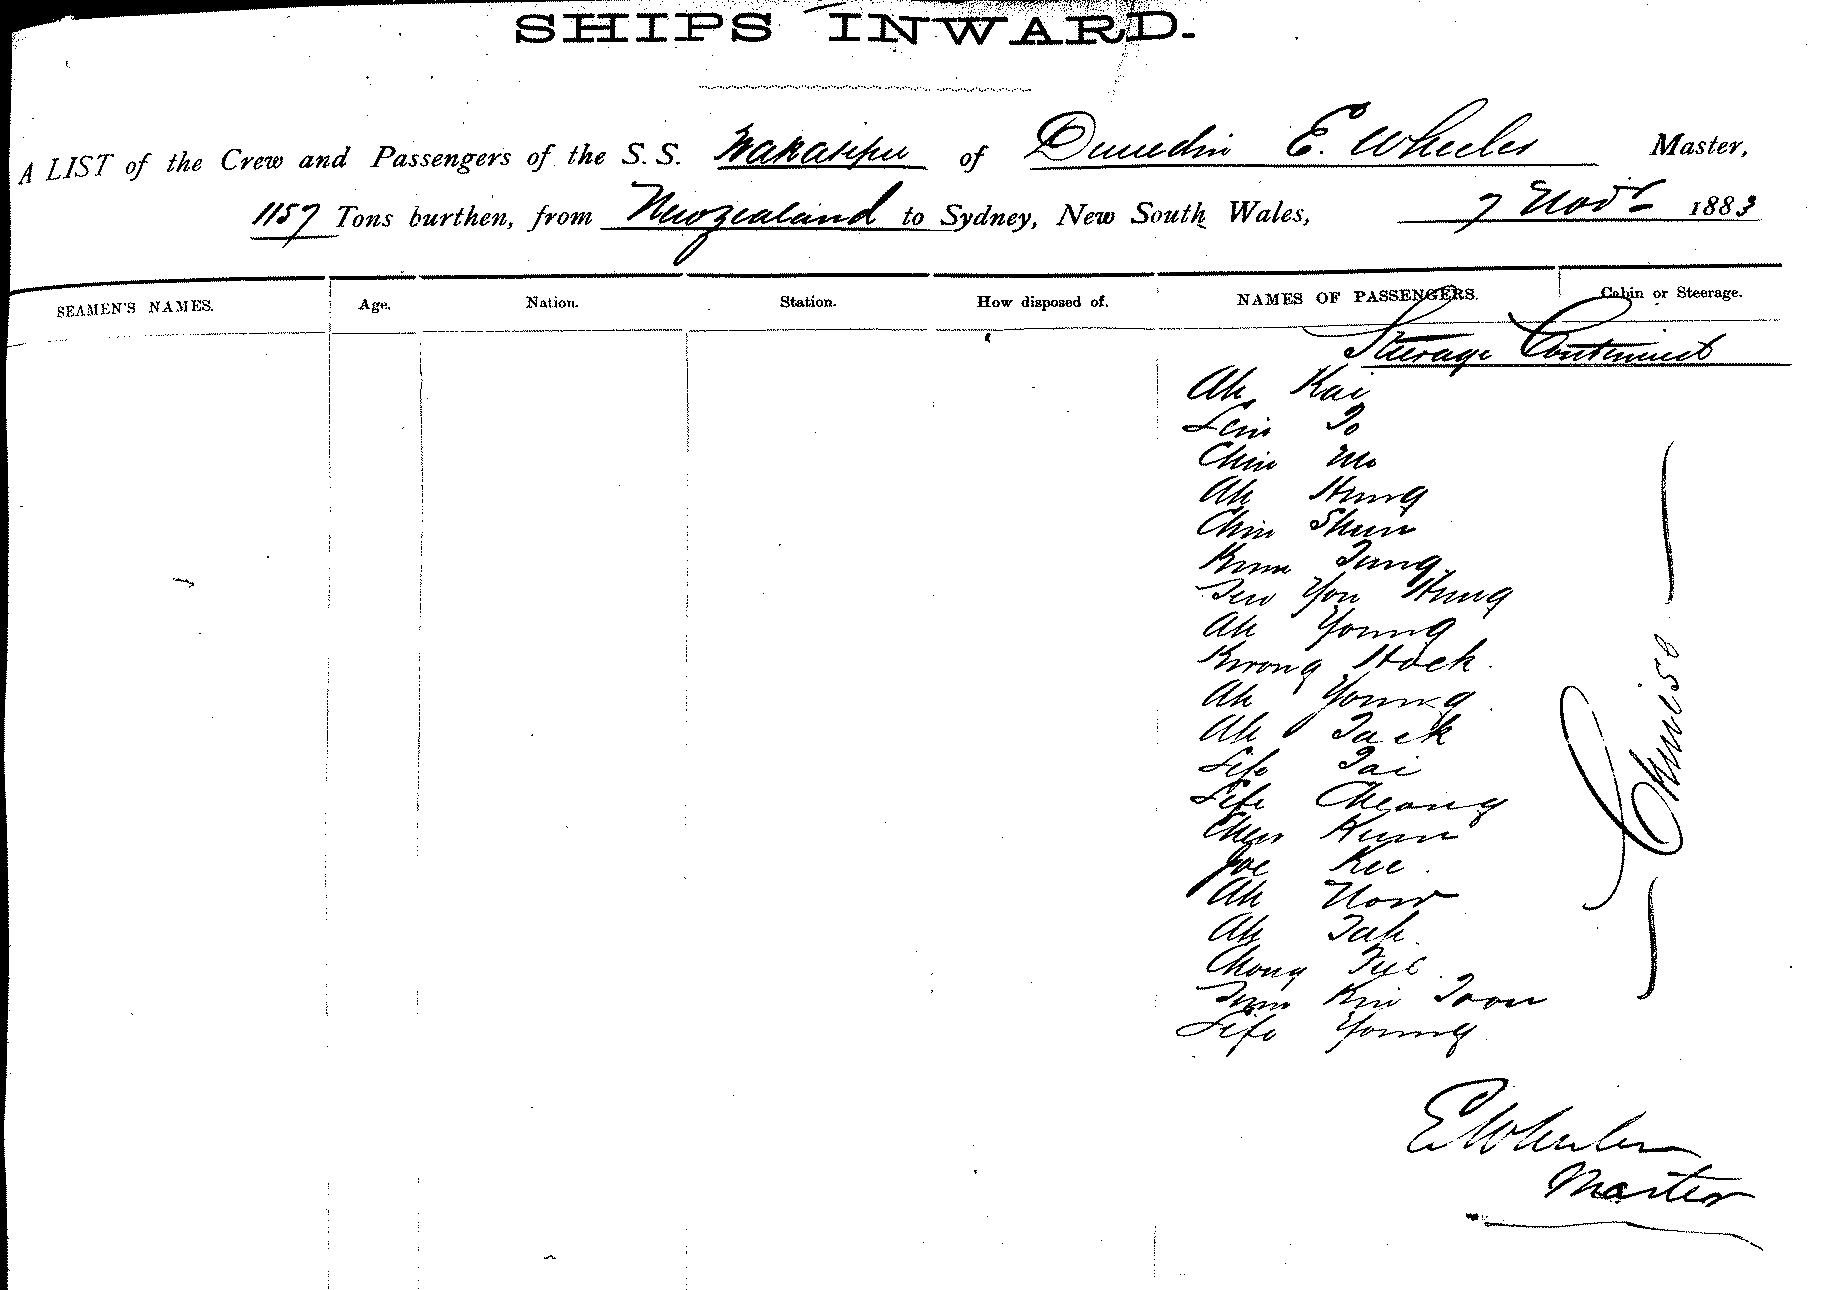 SHIPS INWARD.
A LIST of the Crew and Passengers of the S.S. Wakatipu of Dunedin E. Wheeler Master,
1157 Tons burthen, from New Zealand to Sydney, New South Wales, 7 Novr 1883
SEAMEN'S NAMES. Age. Nation. Station. How disposed of. NAMES OF PASSENGERS. Cabin or Steerage.
Steerage Continued
Ah Kai
Lem To
Chin Mo
Ah Hung
Chin Shun
Kum Tung
Yon Hung
Ah Young
Kwong Hock
Ah Young
Ah Tack
Tai
Cheong
Chen Kum
Joe Kee
Ah How
Ah Tah
Chong
Kin Toon
Young
Chinese
E Wheeler
Master